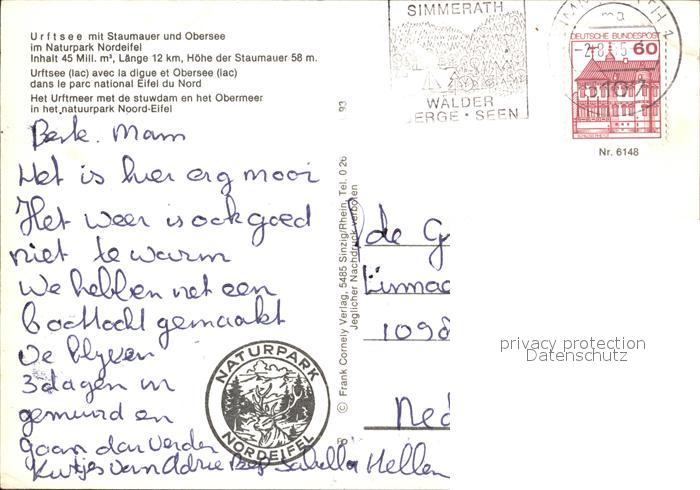 Urftsee mit Staumauer und Obersee
im Naturpark Nordeifel
Inhalt 45 Mill. m³, Länge 12 km, Höhe der Staumauer 58 m.
Urftsee (lac) avec la digue et Obersee (lac)
dans le parc national Eifel du Nord
Het Urftmeer met de stuwdam en het Obermeer
in het natuurpark Noord-Eifel
SIMMERATH
WÄLDER
BERGE · SEEN
DEUTSCHE BUNDESPOST
60
Nr. 6148
Mam
Het is hier erg mooi
Het weer is ook goed
niet te warm
We hebben net een
boottocht gemaakt
We blijven
3 dagen in
gemund en
gaan dan verder
Kusjes van Adrie Bep Isabella Hellen
© Frank Comely Verlag, 5485 Sinzig/Rhein, Tel. 0 26
Jeglicher Nachdruck verboten
NATURPARK
NORDEIFEL
de G
1098
Ned
privacy protection
Datenschutz